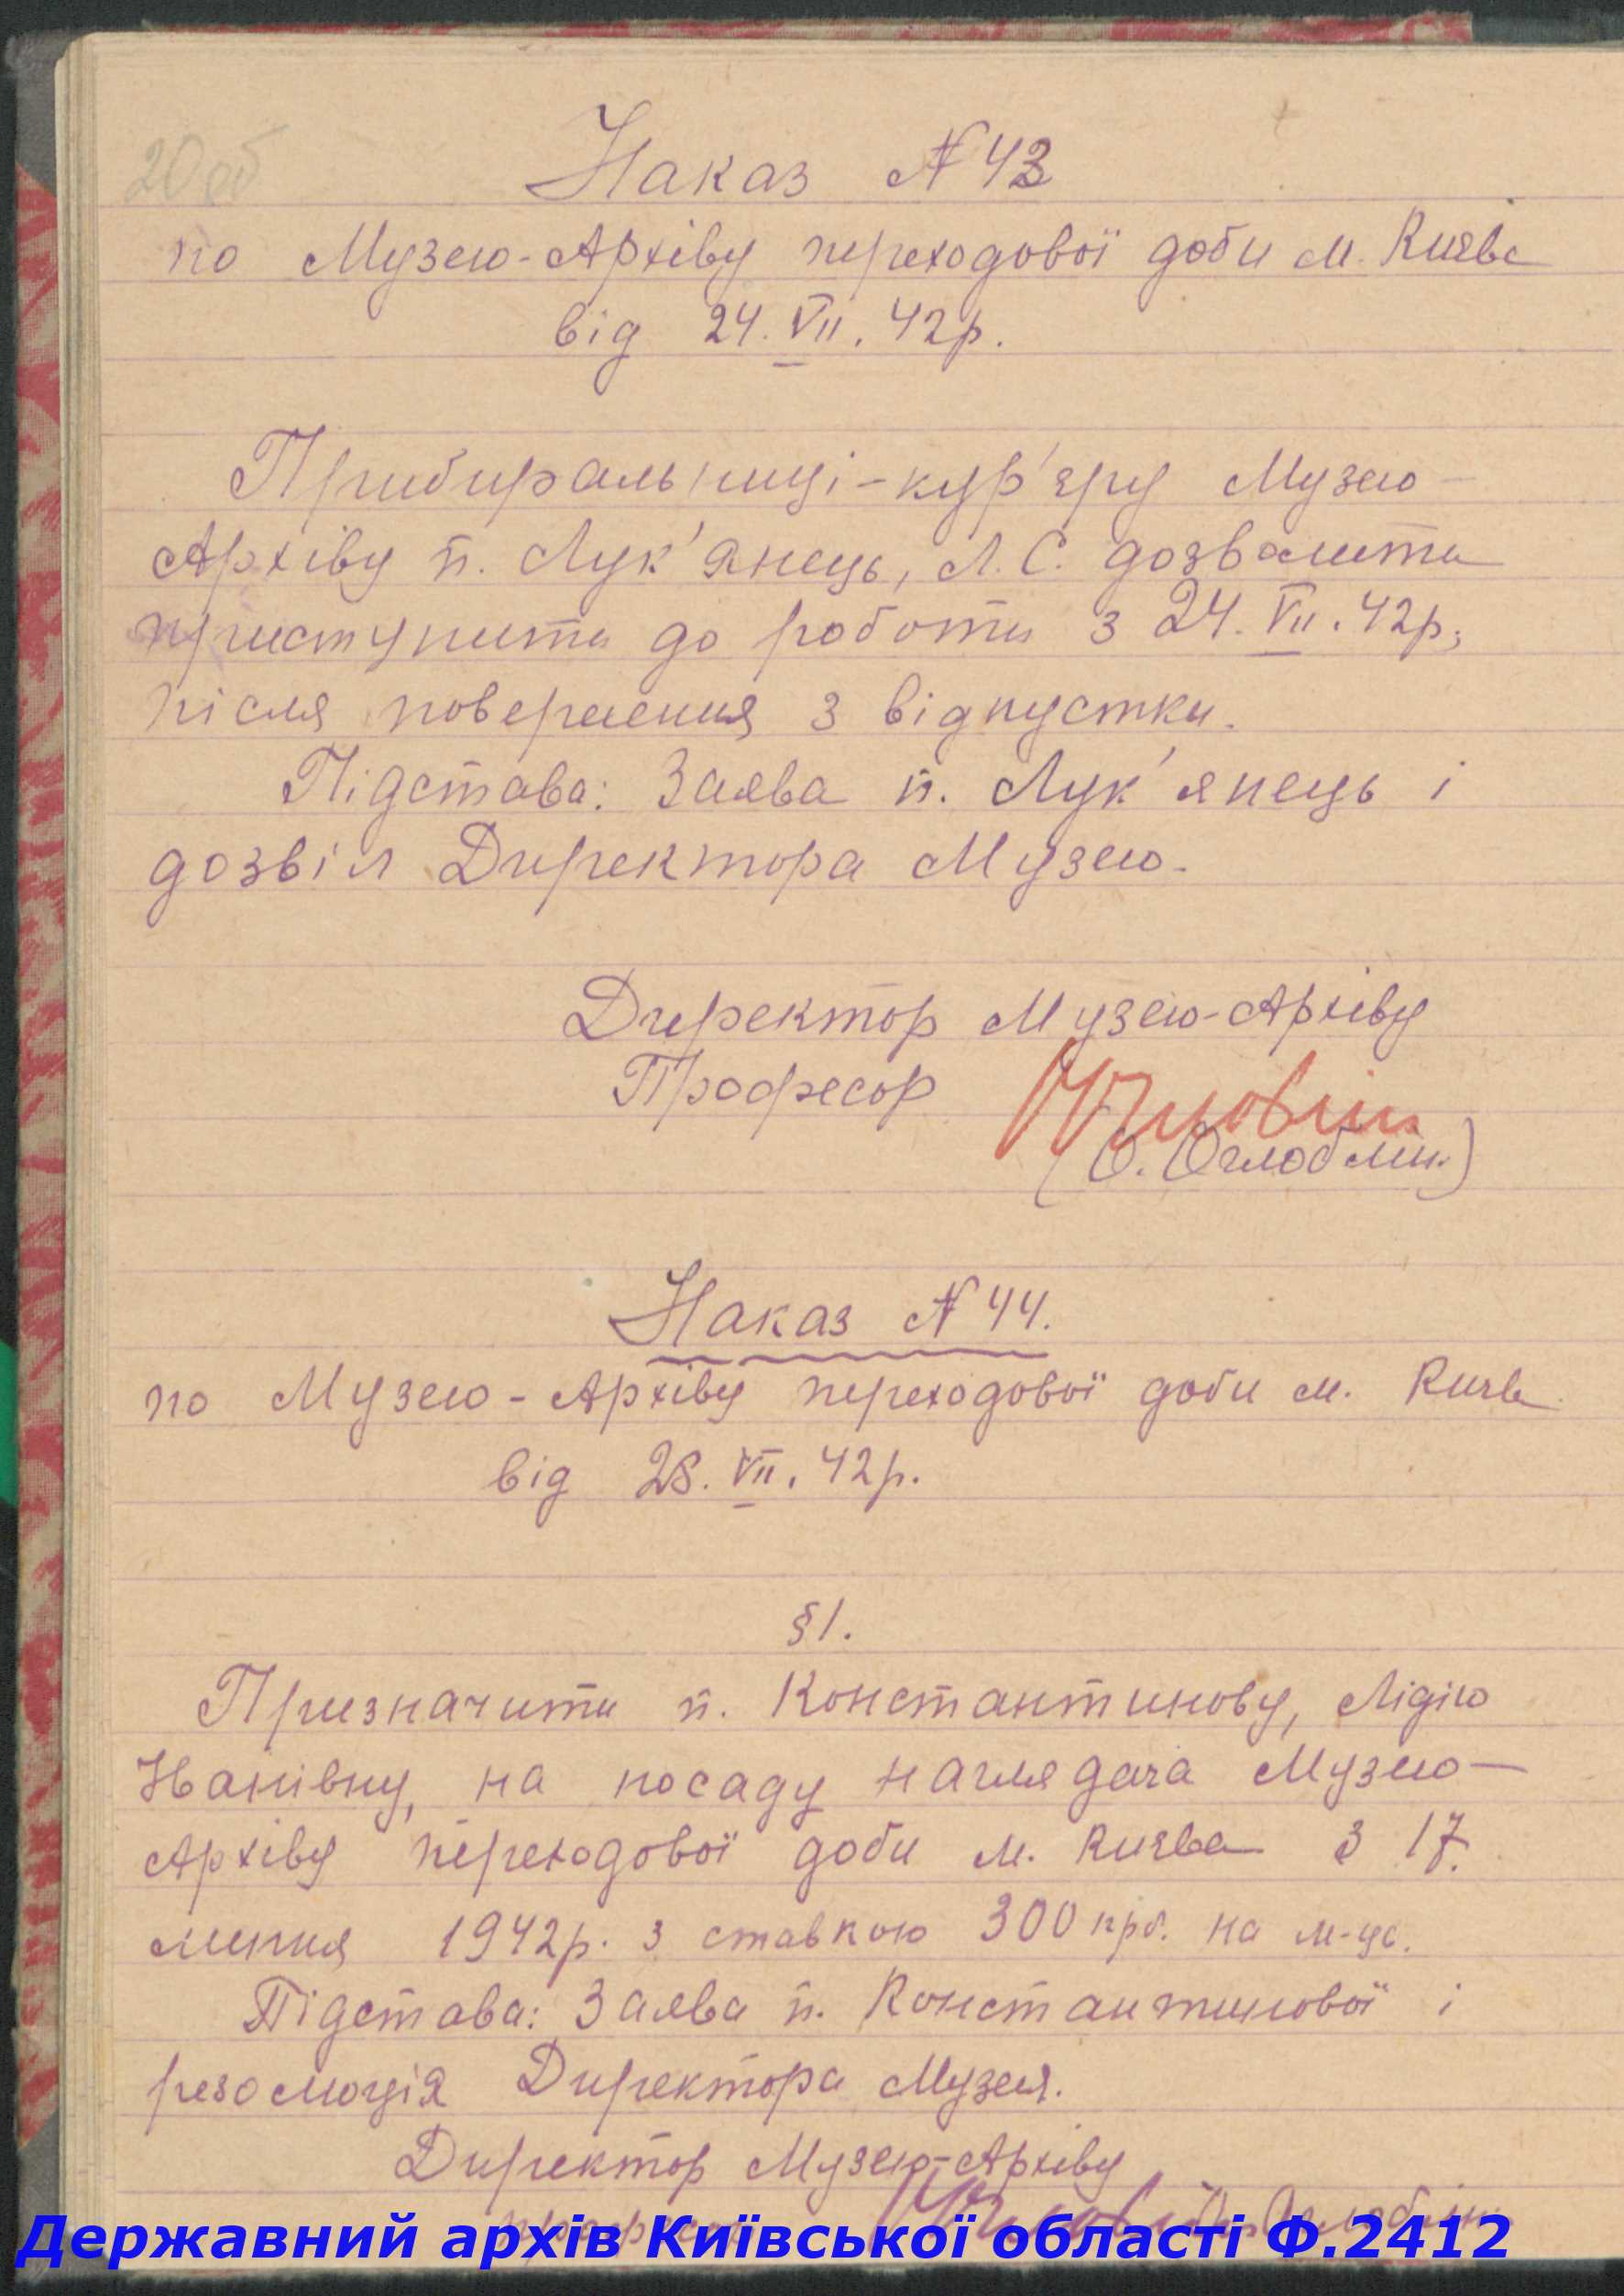 20 об
Наказ № 43
по Музею-Архіву переходової доби м. Києва
від 24. VII. 42р.
Прибиральниці-кур'єру Музею-
Архіву п. Лук'янець, Л. С. дозволити
приступити до роботи з 24. VII. 42р,
після повернення з відпустки.
Підстава: Заява п. Лук'янець і
дозвіл Директора Музею.
Директор Музею-Архіву
Професор
(О. Оглоблин)
Наказ № 44.
по Музею-Архіву переходової доби м. Києва
від 28. VII. 42р.
§1.
Призначити п. Константинову, Лідію
Іванівну, на посаду наглядача Музею-
Архіву переходової доби м. Києва з 17.
липня 1942р. з ставкою 300 крб. на м-ць.
Підстава: Заява п. Константинової і
резолюція Директора Музея.
Директор Музею-Архіву
професор О. Оглоблин
Державний архів Київської області Ф.2412